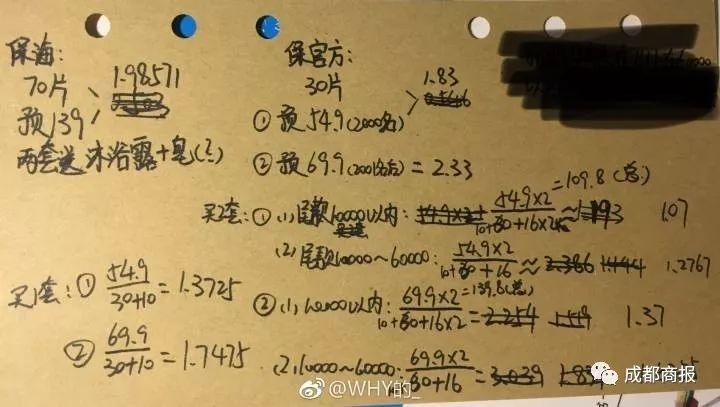 保海：
70片
预139
1.98571
两套送沐浴露+皂(?)
保官方：
30片
1.83
① 预54.9(2000名)
② 预69.9(2001名后)=2.33
买2套：① (1)尾款10000以内：54.9×2=109.8(总)
10+30+16×2
≈
1.07
(2)尾款10000~60000：54.9×2
10+30+16
≈
1.2767
② (1)10000以内：69.9×2=139.8(总)
10+30+16×2
=2.254 1.59 1.37
(2)10000~60000：69.9×2
10+30+16
=3.039
买1套：① 54.9
30+10
=1.3725
② 69.9
30+10
=1.7475
@WHY的_
成都商报